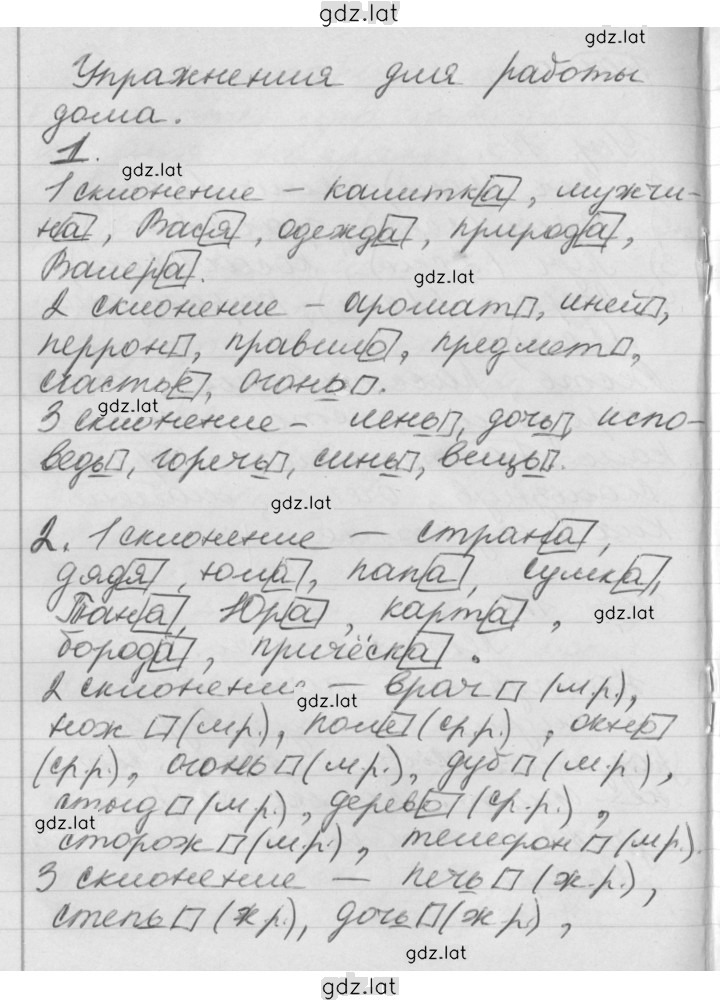 gdz.lat
gdz.lat
Упражнения для работы
дома.
1.
gdz.lat
1 склонение – калитка, мужчи-
на, Вася, одежда, природа,
Валера.
gdz.lat
2 склонение – аромат, иней,
перрон, правило, предмет,
счастье, огонь.
gdz.lat
3 склонение – лень, дочь, испо-
ведь, горечь, синь, вещь.
gdz.lat
2. 1 склонение – страна,
дядя, юла, папа, сумка,
Таня, Юра, карта,
gdz.lat
борода, причёска.
2 склонение – врач (м.р.),
gdz.lat
нож (м.р.), поле (ср.р.), окно
(ср.р.), огонь (м.р.), дуб (м.р.),
стыд (м.р.), дерево (ср.р.),
gdz.lat
сторож (м.р.), телефон (м.р.).
3 склонение – печь (ж.р.),
степь (ж.р.), дочь (ж.р.),
gdz.lat
gdz.lat